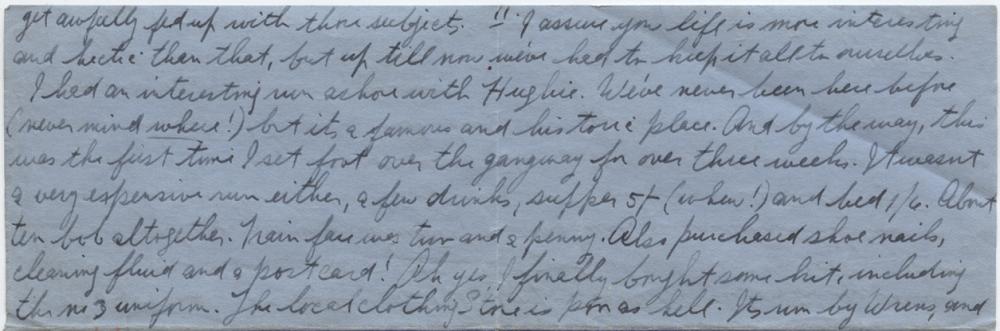 get awfully fed up with those subjects. !! I assure you life is more interesting
and hectic than that, but up till now we've had to keep it all to ourselves.
I had an interesting run ashore with Hughie. We've never been here before
(never mind where!) but its a famous and historic place. And by the way, this
was the first time I set foot over the gangway for over three weeks. It wasnt
a very expensive run either, a few drinks, supper 5/- (whew!) and bed 1/6. About
ten bob altogether. Train fare was two and a penny. Also purchased shoe nails,
cleaning fluid and a postcard! Ah yes, I finally bought some kit, including
the no 3 uniform. The local clothing Store is as hell. Its run by Wrens, and